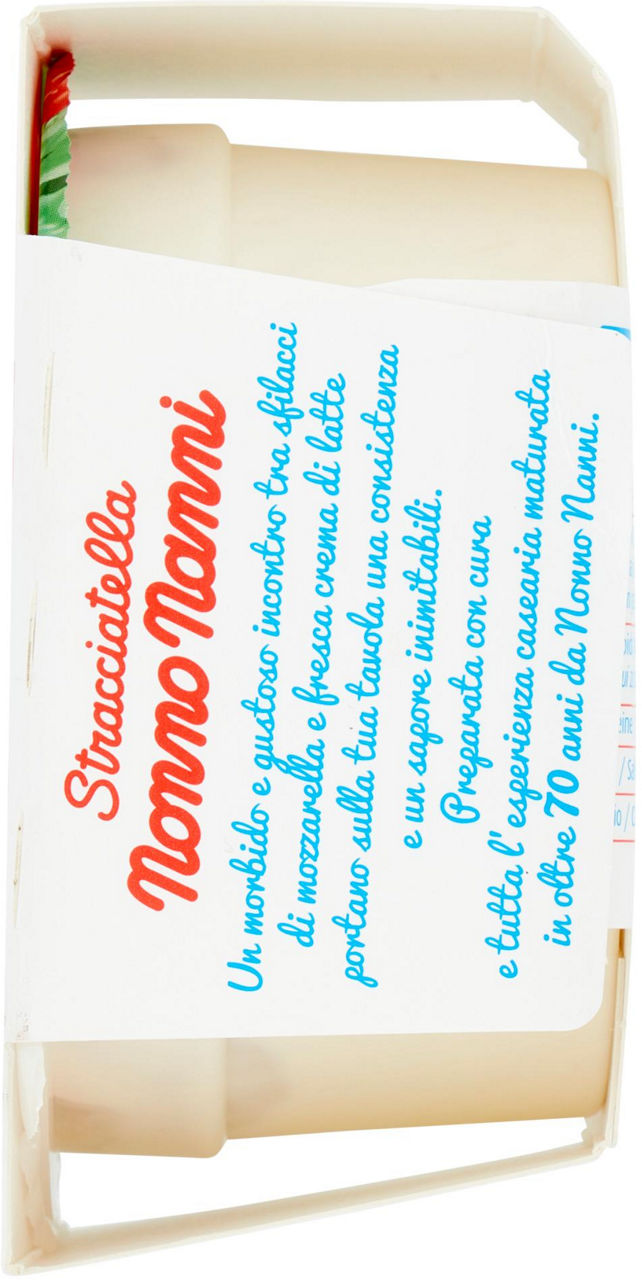 Stracciatella
Nonno Nanni
Un morbido e gustoso incontro tra sfilacci
di mozzarella e fresca crema di latte
portano sulla tua tavola una consistenza
e un sapore inimitabili.
Preparata con cura
e tutta l'esperienza casearia maturata
in oltre 70 anni da Nonno Nanni.